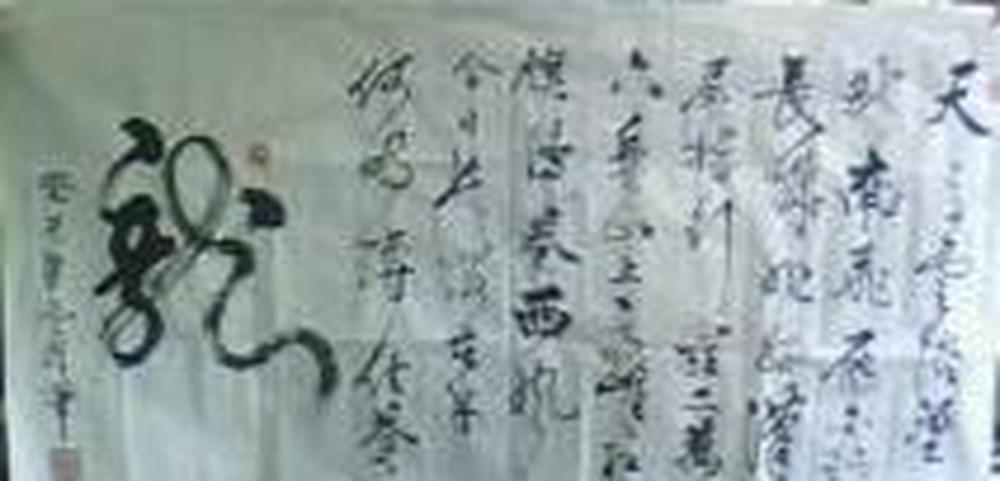 天高云淡望
断南飛雁不
長城非好漢
屈指行程二萬
六盘山上高峰红
旗漫卷西风
今日长缨在手
何时缚住苍
龍